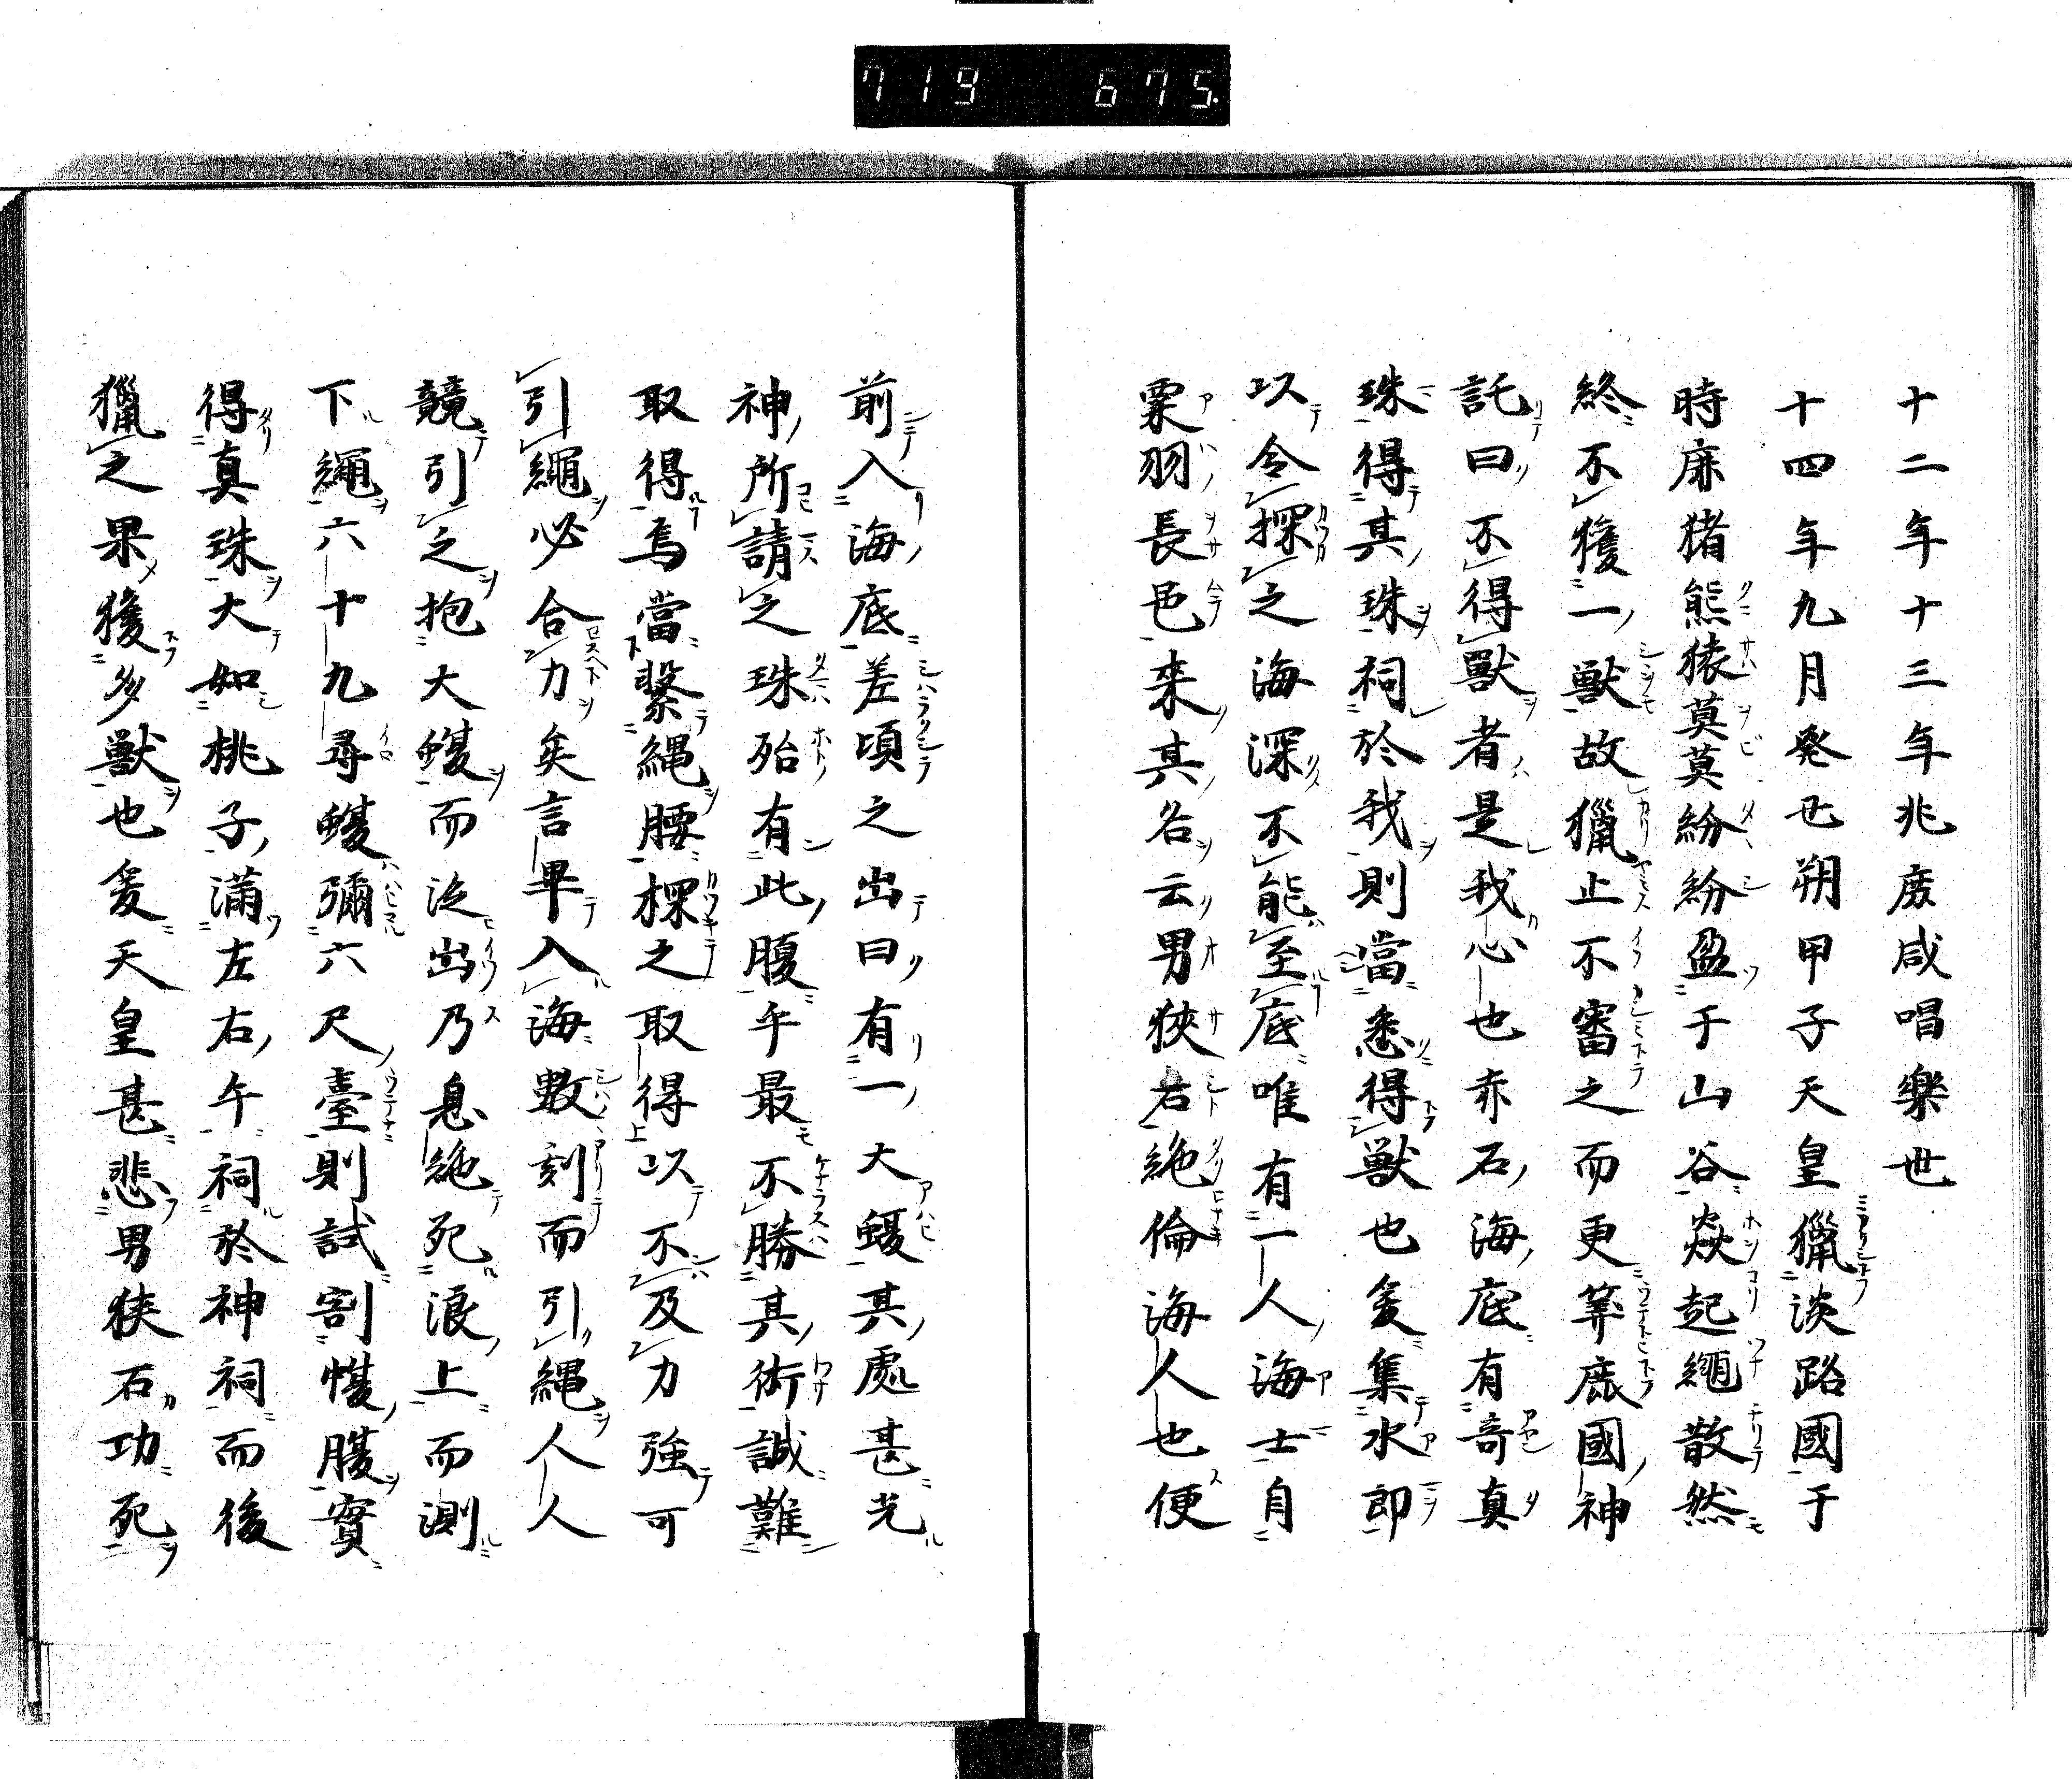 719 675.
十二年十三年兆庶咸唱樂世
十四年九月癸丑朔甲子天皇獵淡路國于
時麻猪熊猿莫莫紛紛盈于山谷焱起繩散然
終不獲一獸故獵止不審之而更筭鹿國神
託曰不得獸者是我心也赤石海底有奇真
珠得其珠祠於我則當悉得獸也爰集水即
以令探之海深不能至底唯有一人海士自
粟羽長邑来其名云男狹石絶倫海人也便
前入海底差頃之出曰有一大鰒其處甚光
神所請之珠殆有此腹乎最不勝其術誠難
取得焉當繫縄腰探之取得以不及力強可
引繩必合力矣言畢入海數刻而引縄人人
競引之抱大鰒而泛出乃息絶死浪上而測
下繩六十九尋鰒彌六尺臺則試割鰒腹實
得真珠大如桃子滿左右午祠於神祠而後
獵之果獲多獸也爰天皇甚悲男狹石功死